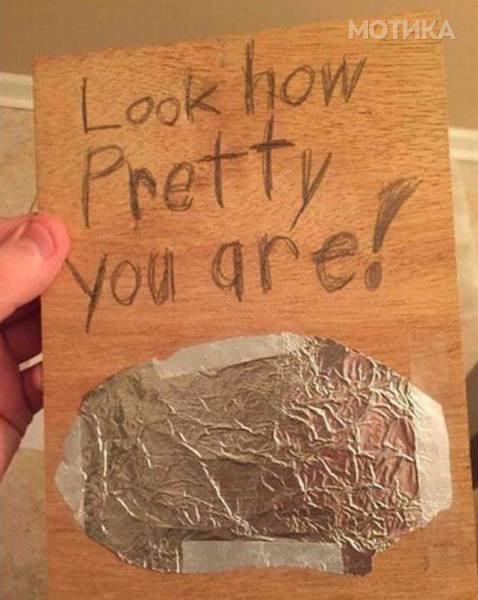 МОТИКА
Look how
Pretty
you are!